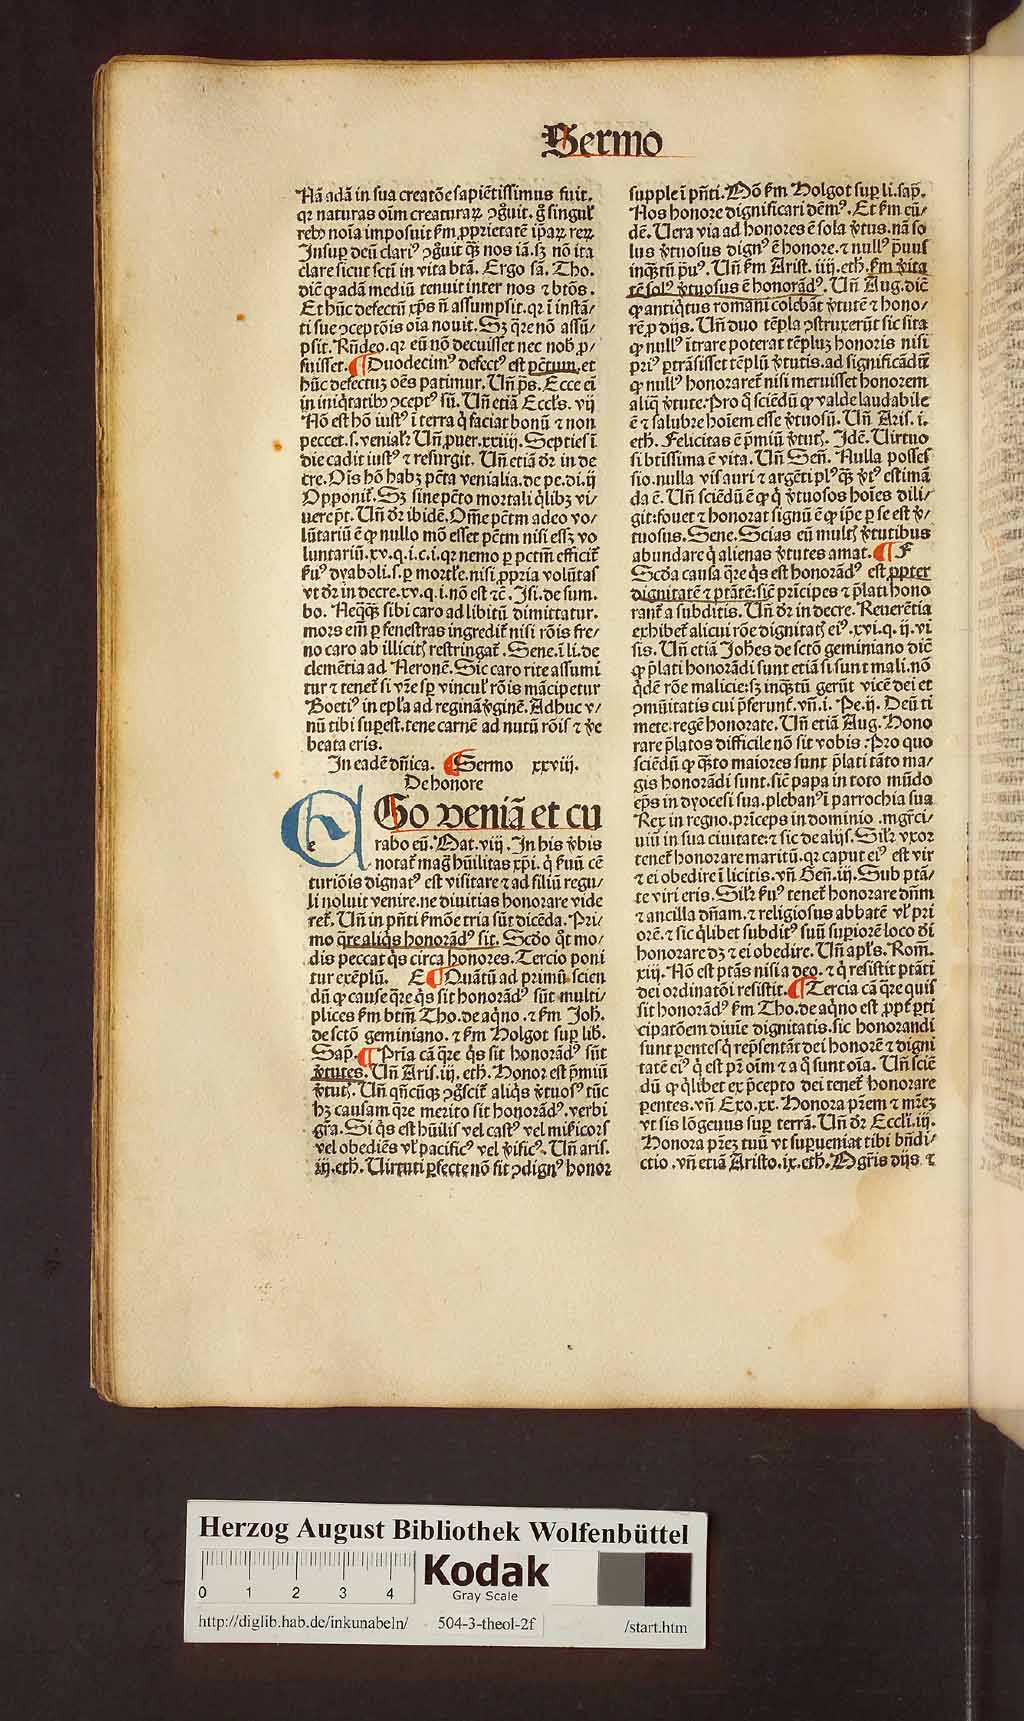 Sermo
Nā adā in sua creatōe sapiētissimus fuit.
qꝛ naturas oīm creaturaꝝ ꝯgͦuit. gͦ singul̓
rebꝰ noīa imposuit ẜm ꝓprietatē ip̄aꝝ reꝝ
Insuꝑ deū clariꝰ ꝯgͦuit qͣꝫ nos iā. sꝫ nō ita
clare sicut sctī in vita btā. Ergo sā. Tho.
diē ꝙ adā mediū tenuit inter nos ⁊ btōs.
Et hūc defectū xp̄s nͦ assumpsit. qꝛ ī instā/
ti sue ꝯceptōis oīa nouit. Sꝫ qͣre nō assū/
psit. Rn̄deo. qꝛ eū nō decuisset nec nobͥ ꝓ/
fuisset. ¶ Duodecimꝰ defectꝰ est pctm̄. et
hūc defectuꝫ oēs patimur. Un̄ pͥs. Ecce ei̇̄
in iniqͥtatibꝰ ꝯceptꝰ sū. Un̄ etiā Eccl̓s. vij
Nō est hō iustꝰ ī terra qͥ faciat bonū ⁊ non
peccet. s. venial̓r Un̄ ꝓuer. xxiiij. Septies ī
die cadit iustꝰ ⁊ resurgit. Un̄ etiā dr̄ in de
cre. Ois hō habꝫ pctā venialia. de pe. di. ij
Opponit̄. Sꝫ sine pctō mortali qͥlibꝫ vi/
uere pͭt. Un̄ dr̄ ibidē. Om̄e pctm̄ adeo vo/
lūtariū ē ꝙ nullo mō esset pctm̄ nisi essꝫ vo
luntariū. xv. q. i. c. i. qꝛ nemo ꝑ pctm̄ efficit̄
ẜuꝰ dyaboli. s. ꝑ mortl̓e. nisi ꝓpria volūtas
vt dr̄ in decre. xv. q. i. nō est ⁊c̄. Isi. de sum.
bo. Neqͣqͣꝫ sibi caro ad libitū dimittatur.
mors em̄ ꝑ fenestras ingredit̄ nisi rōis fre/
no caro ab illicitꝭ restringat̄. Sene. ī li. de
clemētia ad Neronē. Sic caro rite assumi
tur ⁊ tenet̄ si vr̄e sꝑ vincul̓ rōis mācipetur
Boetiꝰ in epl̓a ad reginā vͥginē. Adhuc v/
nū tibi suꝑest. tene carnē ad nutū rōis ⁊ vͤe
beata eris.
In eadē dn̄ica. ¶ Sermo xxviij.
De honore
e Go veniā et cu
rabo eū. Mat. viij. In his vͤbis
notat̄ magͣ hūilitas xp̄i. qͥ ẜuū cē
turiōis dignatꝰ est visitare ⁊ ad filiū regu/
li noluit venire. ne diuitias honorare vide
ret̄. Un̄ in pn̄ti ẜmōe tria sūt dicēda. Pri/
mo qͣre aliqͥs honorādꝰ sit. Scdo qͦt mo/
dis peccat qͥs circa honores. Tercio poni
tur exēplū. E ¶ Quātū ad primū scien
dū ꝙ cause qͣre qͥs sit honorādꝰ sūt multi/
plices ẜm btm̄ Tho. de aqͥno. ⁊ ẜm Joh.
de sctō geminiano. ⁊ ẜm Holgot suꝑ lib.
Sap̄. ¶ Pria cā qͣre qͥs sit honorādꝰ sūt
vͥtutes. Un̄ Aris. iij. eth. Honor est p̄miū
vͥtutꝭ. Un̄ qn̄cūqꝫ ꝯgͦscit̄ aliqͥs vͥtuosꝰ tūc
hꝫ causam qͣre merito sit honorādꝰ. verbi
gr̄a. Si qͥs est hūilis vel castꝰ vel mi̇̄ẜicors
vel obediēs vl̓ pacificꝰ vel vͤificꝰ. Un̄ aris.
iij. eth. Uirtuti ꝑfecte nō sit ꝯdignꝰ honor
supple ī pn̄ti. Mō ẜm Holgot suꝑ li. sap̄.
Nos honore dignificari dēmꝰ. Et ẜm eū/
dē. Uera via ad honores ē sola vͥtus. nā so
lus vͥtuosus dignꝰ ē honore. ⁊ nullꝰ pͣuus
inqͣꝫtū pͣuꝰ. Un̄ ẜm Arist. iiij. eth. ẜm vͤita
tē solꝰ vͥtuosus ē honorādꝰ. Un̄ Aug. diē
ꝙ antiqͥtus romani colebāt vͥtutē ⁊ hono/
rē ꝓ dijs. Un̄ duo tēpla ꝯstruxerūt sic sita
ꝙ nullꝰ ītrare poterat tēpluꝫ honoris nisi
priꝰ ꝑtrāsisset tēplū vͥtutis. ad significādū
ꝙ nullꝰ honoraret̄ nisi meruisset honorem
aliqͣ vͥtute. Pro qͦ sciēdū ꝙ valde laudabile
ē ⁊ salubre hoīem esse vͥtuosū. Un̄ Aris. i.
eth. Felicitas ē p̄miū vͥtutꝭ. Idē. Uirtuo
si btissima ē vita. Un̄ Sen̄. Nulla posses
sio. nulla vis auri ⁊ argēti plꝰ qͣꝫ vͥtꝰ estimā
da ē. Un̄ sciēdū ē ꝙ qͥ vͥtuosos hoīes dili/
git: fouet ⁊ honorat signū ē ꝙ ip̄e ꝑ se est vͥ/
tuosus. Sene. Scias eū multꝭ vͥtutibus
abundare qͥ alienas vͥtutes amat. ¶ F
Scd̓a causa qͣre qͥs est honorādꝰ est ꝓpter
dignitatē ⁊ ptātē: sic̄ pͥcipes ⁊ p̄lati hono
rant̄ a subditis. Un̄ dr̄ in decre. Reuerētia
exhibet̄ alicui rōe dignitatꝭ eiꝰ. xvi. q. ij. vi
sis. Un̄ etiā Joh̓es de sctō geminiano diē
ꝙ p̄lati honorādi sunt etiā si sunt mali. nō
qͥdē rōe malicie: sꝫ inqͣꝫtū gerūt vicē dei et
ꝯmūitatis cui p̄ferunt̄. vn̄. i. Pe. ij. Deū ti
mete. regē honorate. Un̄ etiā Aug. Hono
rare p̄latos difficile nō sit vobis. Pro quo
sciēdū ꝙ qͣꝫto maiores sunt p̄lati tāto ma/
gis honorādi sunt. sic̄ papa in toto mūdo
ep̄s in dyocesi sua. plebanꝰ ī parrochia sua
Rex in regno. pͥnceps in dominio. mgr̄ci/
uiū in sua ciuitate: ⁊ sic de alijs. Sil̓r vxor
tenet̄ honorare maritū. qꝛ caput eiꝰ est vir
⁊ ei obedire ī licitis. vn̄ Gen̄. iij. Sub ptā/
te viri eris. Sil̓r ẜuꝰ tenet̄ honorare dn̄m
⁊ ancilla dn̄am. ⁊ religiosus abbatē vl̓ pri
orē. ⁊ sic qͥlibet subditꝰ suū suꝑiorē loco d̓i
honorare dꝫ ⁊ ei obedire. Un̄ apl̓s. Rom̄.
xiij. Nō est ptās nisi a deo. ⁊ qͥ resistit ptāti
dei ordinatōi resistit. ¶ Tercia cā qͣre quis
sit honorādꝰ ẜm Tho. de aqͥno est ꝓpt̄ ꝑti
cipatōem diuīe dignitatis. sic honorandi
sunt ꝑentes qͥ rep̄sentāt dei honorē ⁊ digni
tatē eiꝰ qͥ est pr̄ oīm ⁊ a qͦ sunt oīa. Un̄ sciē
dū ꝙ qͥlibet ex p̄cepto dei tenet̄ honorare
ꝑentes. vn̄ Exo. xx. Honora pr̄em ⁊ mr̄eꝫ
vt sis lōgeuus suꝑ terrā. Un̄ dr̄ Eccl̓i. iij.
Honora pr̄eꝫ tuū vt suꝑueniat tibi bn̄di/
ctio. vn̄ etiā Aristo. ix. eth. Mgr̄is dijs ⁊
Herzog August Bibliothek Wolfenbüttel
0 1 2 3 4
Kodak
Gray Scale
http://diglib.hab.de/inkunabeln/ 504-3-theol-2f /start.htm